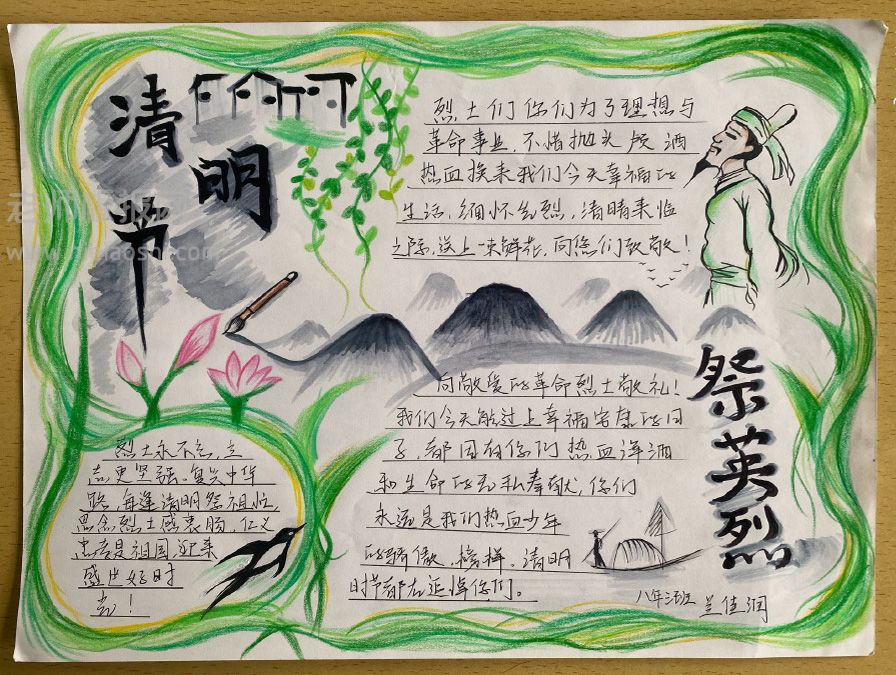 清明节
烈士们你们为了理想与
革命事业,不惜抛头颅洒
热血换来我们今天幸福的
生活,缅怀先烈,清晴来临
之际,送上一束鲜花,向您们致敬!
祭英烈
向敬爱的革命烈士敬礼!
我们今天能过上幸福安康的日
子,都因有你们热血洋洒
和生命的无私奉献,你们
永远是我们热血少年
的骄傲,榜样。清明
时节都在追悼你们。
烈士永不忘,立
志更坚强。复兴中华
路,每逢清明祭祖忙,
思念烈士感衷肠,仁义
忠孝是祖国迎来
盛世好时
光!
八年三班 兰佳润